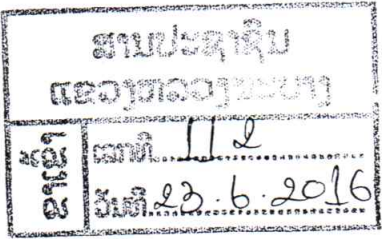 ສານປະຊາຊົນ
ແຂວງຫລວງພະບາງ
ເລກທີ 112
ວັນທີ 23.6.2016